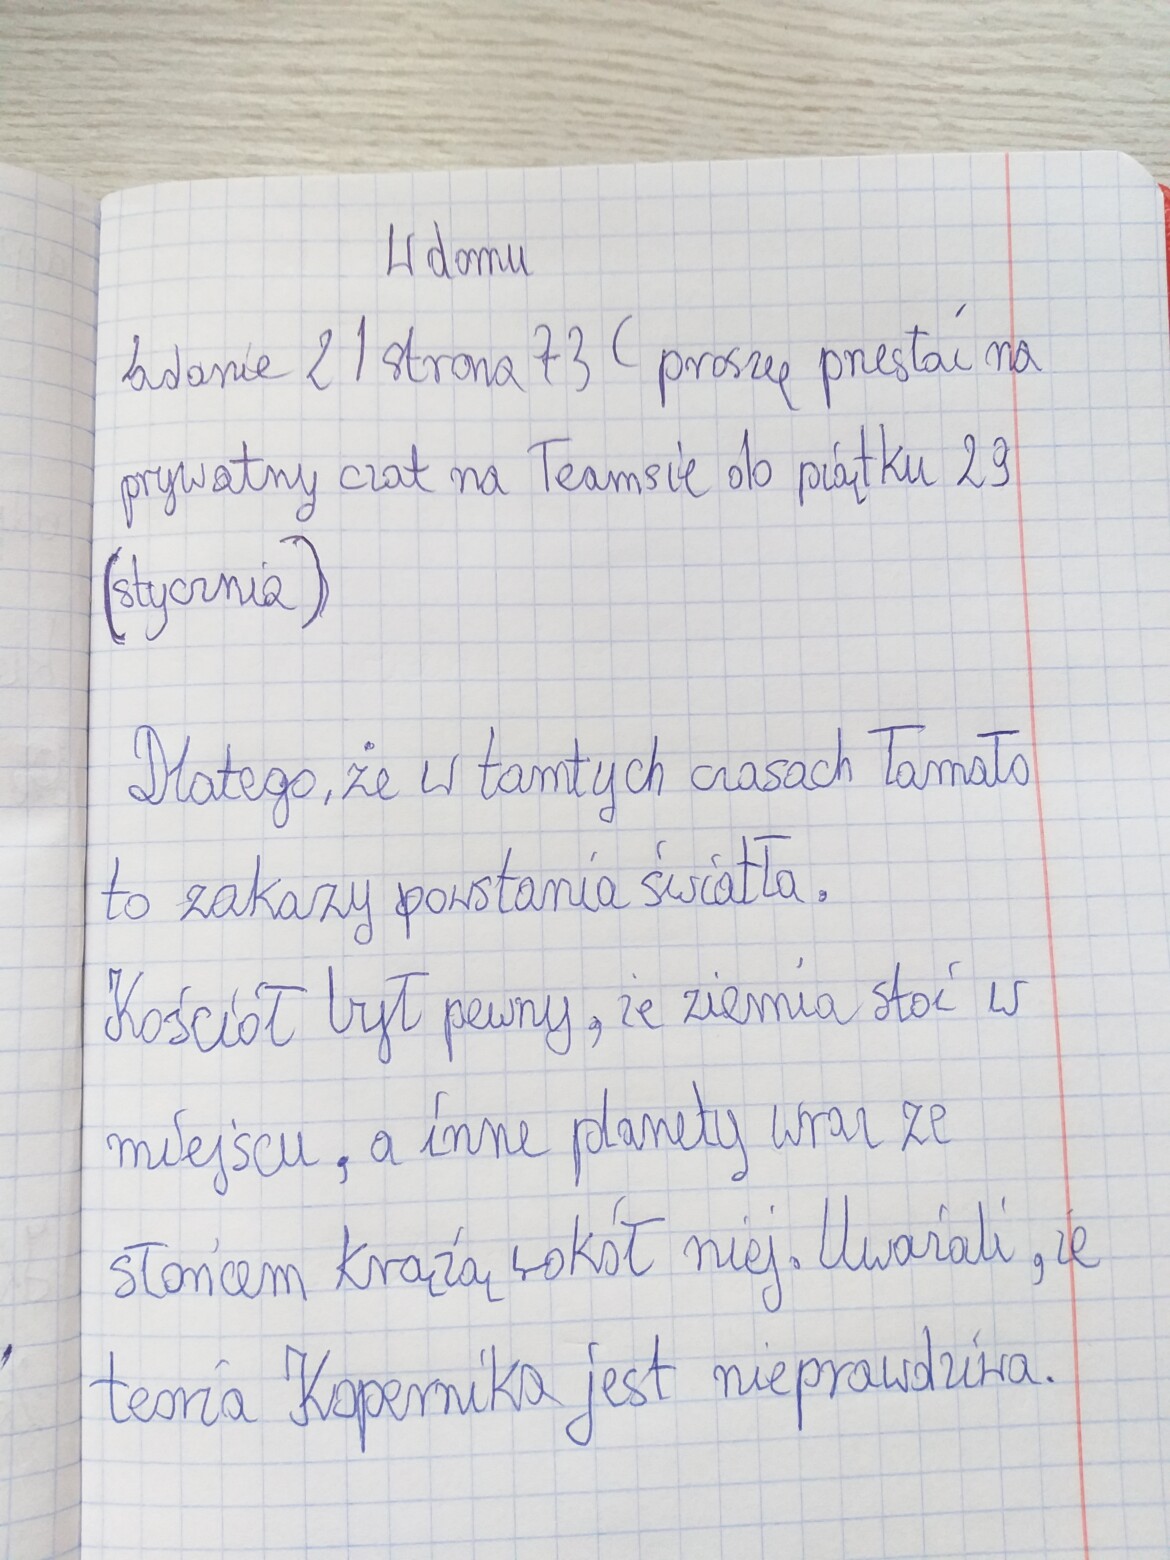 W domu
Zadanie 2 / strona 73 ( proszę przesłać na
prywatny czat na Teamsie do piątku 29
(stycznia)
Dlatego, że w tamtych czasach łamało
to zakazy powstania światła.
Kościół był pewny, że ziemia stoi w
miejscu, a inne planety wraz ze
słońcem krążą wokół niej. Uważali, że
teoria Kopernika jest nieprawdziwa.